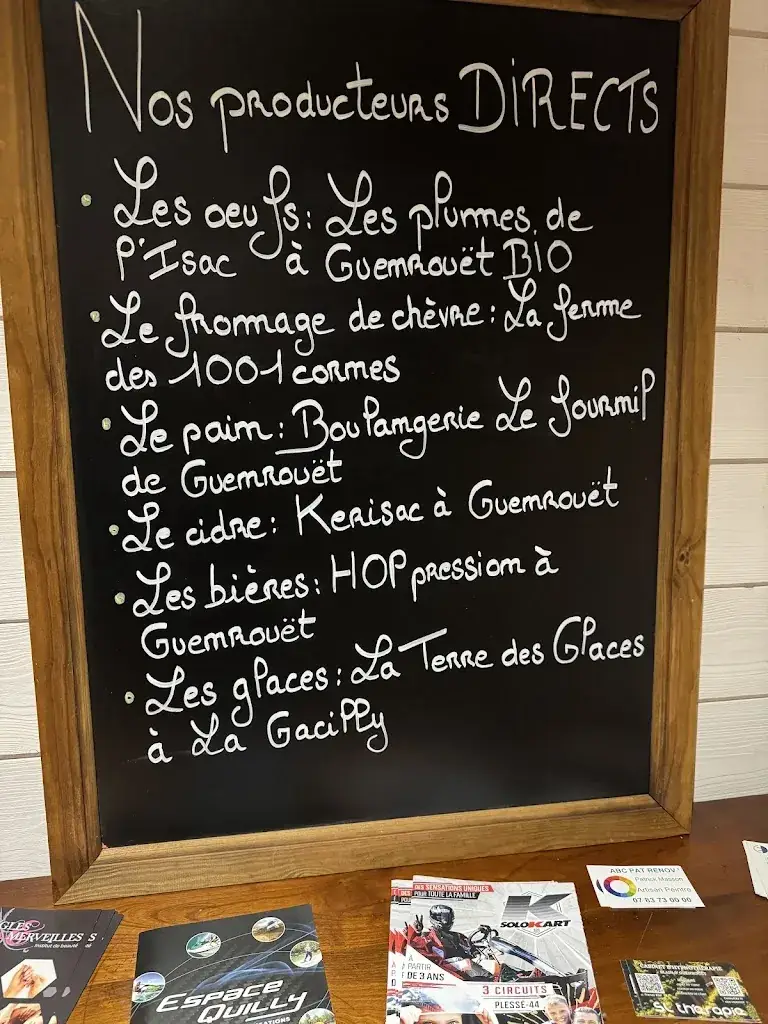 Nos producteurs DIRECTS
• Les oeufs: Les plumes de
l'Isac à Guenrouët BIO
• Le fromage de chèvre: La ferme
des 1001 cornes
• Le pain: Boulangerie Le fournil
de Guenrouët
• Le cidre: Kerisac à Guenrouët
• Les bières: HOP pression à
Guenrouët
• Les glaces: La Terre des Glaces
à La Gacilly
GLES
MERVEILLES S
Institut de beauté
ESPACE
QUILLY
DES SENSATIONS UNIQUES
POUR TOUTE LA FAMILLE
K
SOLOKART
À PARTIR
DE 3 ANS
3 CIRCUITS
PLESSÉ-44
ABC PAT RENOV'
Patrick Masson
Artisan Peintre
07 83 73 00 00
CABINET D'HYPNOTHÉRAPIE
therapie